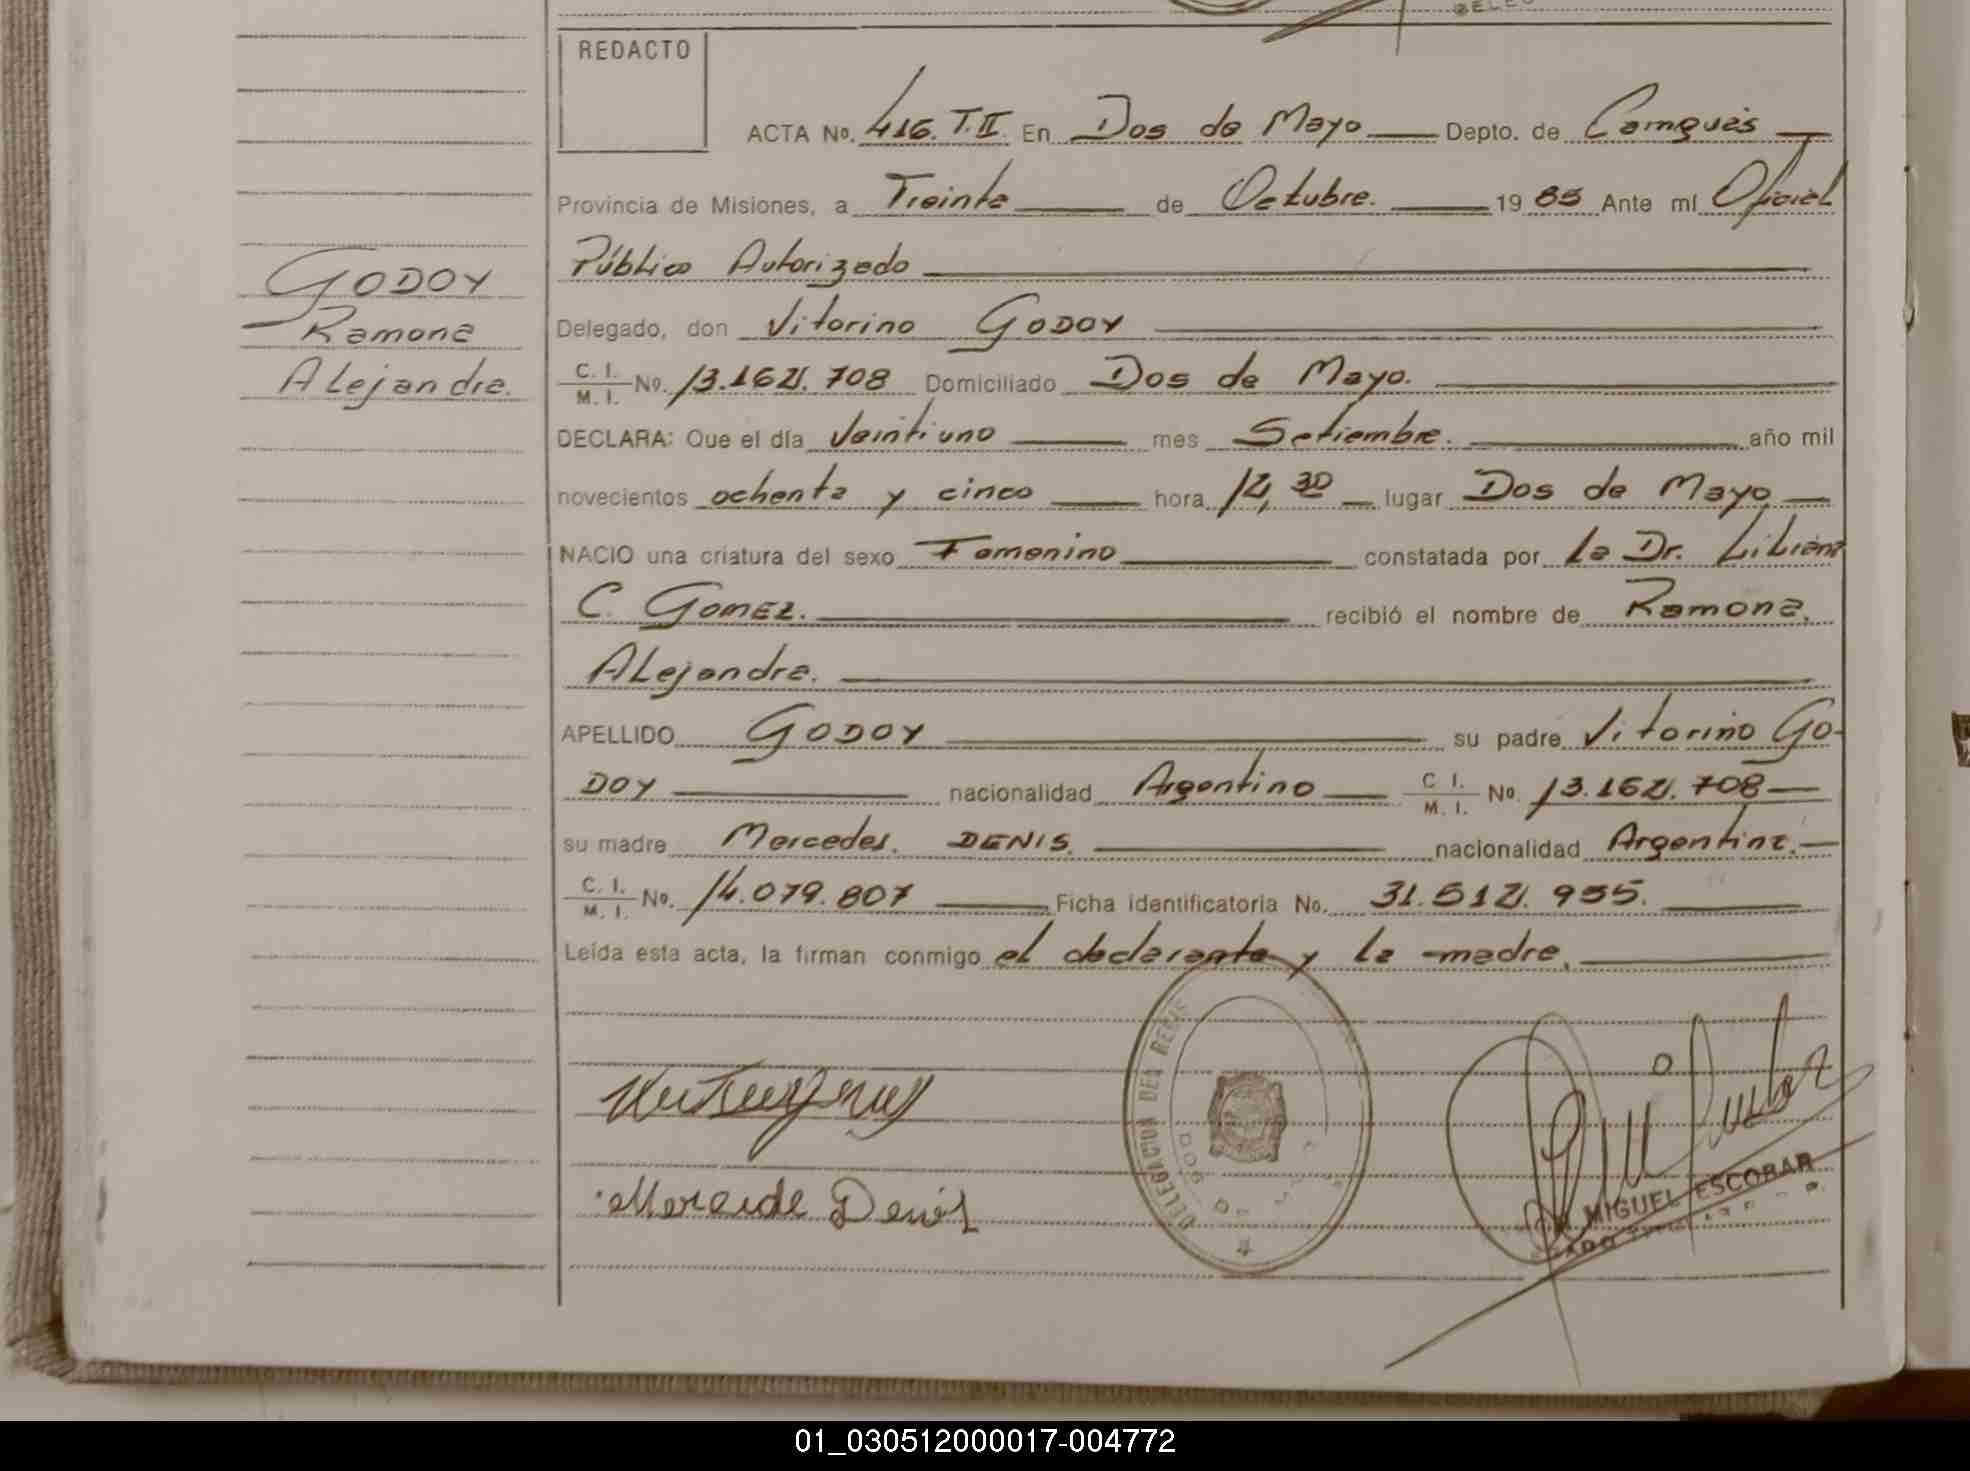 REDACTO
ACTA No. 416. T.II. En Dos de Mayo Depto. de Cainguás
Provincia de Misiones, a Treinta de Octubre. 1985 Ante mí Oficial
Público Autorizado
GODOY
Delegado, don Vitorino GODOY
Ramona
Alejandra.
C. I.
M. I. No. 13.162.708 Domiciliado Dos de Mayo.
DECLARA: Que el día Veintiuno mes Setiembre. año mil
novecientos ochenta y cinco hora 12,30 lugar Dos de Mayo
NACIO una criatura del sexo Femenino constatada por la Dr. Liliana
C. GOMEZ. recibió el nombre de Ramona.
Alejandra.
APELLIDO GODOY su padre Vitorino GO-
DOY nacionalidad Argentino C. I. M. I. No. 13.162.708
su madre Mercedes. DENIS. nacionalidad Argentina.
C. I.
M. I. No. 14.079.807 Ficha identificatoria No. 31.512.955.
Leída esta acta, la firman conmigo el declarante y la madre.
DELEGACION DEL REGIS
DOS
Merceide Denis
MIGUEL ESCOBAR
01_030512000017-004772